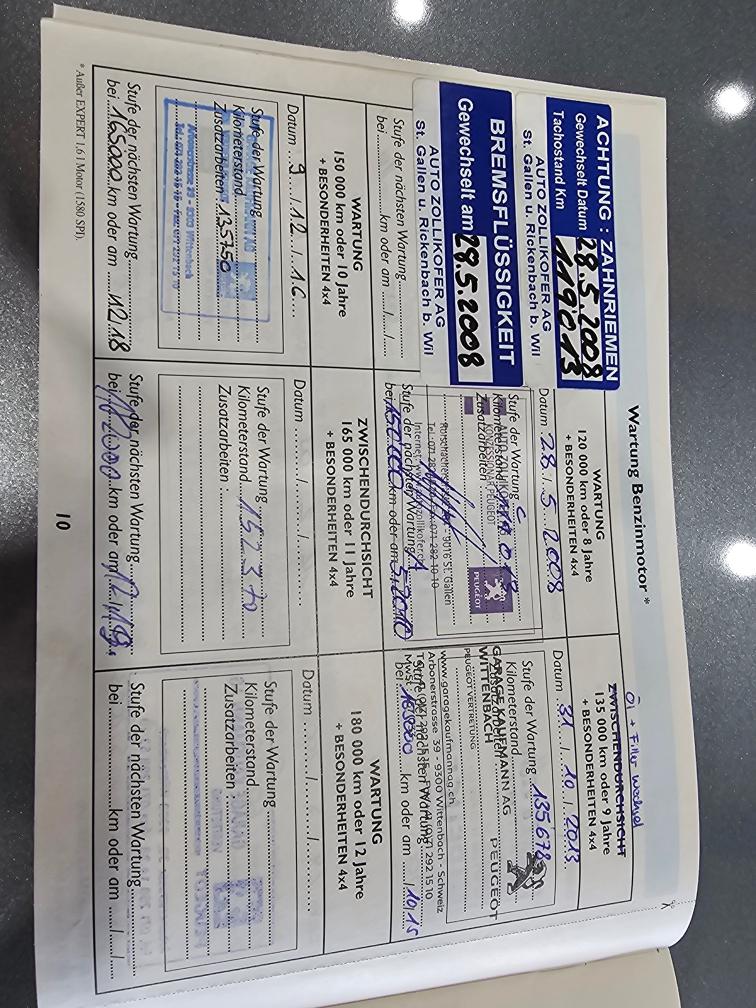 Wartung Benzinmotor *
ACHTUNG : ZAHNRIEMEN
Gewechselt Datum 28.5.2008
Tachostand Km 119013
AUTO ZOLLIKOFER AG
St. Gallen u. Rickenbach b. Wil
BREMSFLÜSSIGKEIT
Gewechselt am 28.5.2008
AUTO ZOLLIKOFER AG
St. Gallen u. Rickenbach b. Wil
Stufe der nächsten Wartung
bei km oder am / /
WARTUNG
120 000 km oder 8 Jahre
+ BESONDERHEITEN 4x4
Datum 28. / 5. / 2008
Stufe der Wartung C
Kilometerstand
Zusatzarbeiten
9016 St. Gallen
PEUGEOT
Stufe der nächsten Wartung A
bei 150000 km oder am 5.2010
Öl + Filter Wechsel
ZWISCHENDURCHSICHT
135 000 km oder 9 Jahre
+ BESONDERHEITEN 4x4
Datum 31. / 10. / 2013
Stufe der Wartung
Kilometerstand 135678
GARAGE KAUFMANN AG
WITTENBACH
PEUGEOT VERTRETUNG
PEUGEOT
www.garagekaufmannag.ch
Arbonerstrasse 39 - 9300 Wittenbach - Schweiz
Stufe der nächsten Wartung
bei 165000 km oder am / 10/15
WARTUNG
150 000 km oder 10 Jahre
+ BESONDERHEITEN 4x4
Datum 9 / 12 / 16
Stufe der Wartung
Kilometerstand 135750
Zusatzarbeiten
Stufe der nächsten Wartung
bei 165000 km oder am 12.18
ZWISCHENDURCHSICHT
165 000 km oder 11 Jahre
+ BESONDERHEITEN 4x4
Datum / /
Stufe der Wartung
Kilometerstand 152370
Zusatzarbeiten :
Stufe der nächsten Wartung
bei km oder am
WARTUNG
180 000 km oder 12 Jahre
+ BESONDERHEITEN 4x4
Datum / /
Stufe der Wartung
Kilometerstand
Zusatzarbeiten :
Stufe der nächsten Wartung
bei km oder am / /
* Außer EXPERT 1.6 l Motor (1580 SPI).
10